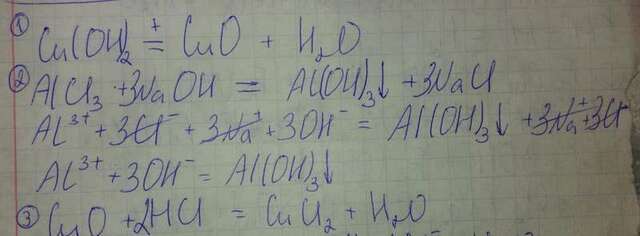 ① Cu(OH)₂ =ᵗ CuO + H₂O
② AlCl₃ + 3NaOH = Al(OH)₃↓ + 3NaCl
Al³⁺ + 3Cl⁻ + 3Na⁺ + 3OH⁻ = Al(OH)₃↓ + 3Na⁺ + 3Cl⁻
Al³⁺ + 3OH⁻ = Al(OH)₃↓
③ CuO + 2HCl = CuCl₂ + H₂O